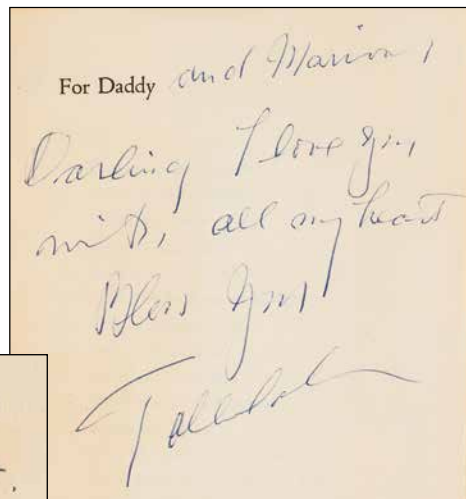 For Daddy and Marion,
Darling I love you
with, all my heart
Bless you
Tallulah